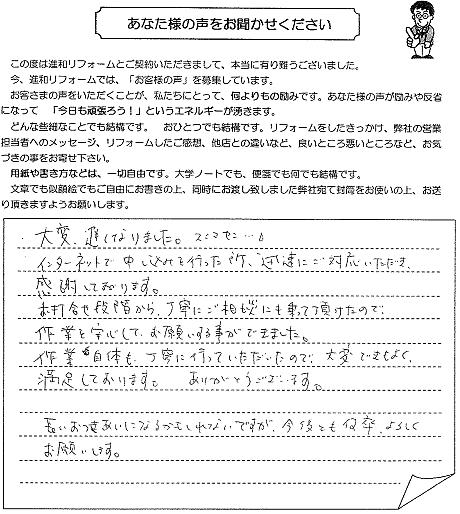 あなた様の声をお聞かせください
この度は進和リフォームとご契約いただきまして、本当に有り難うございました。
今、進和リフォームでは、「お客様の声」を募集しています。
お客さまの声をいただくことが、私たちにとって、何よりもの励みです。あなた様の声が励みや反省
になって　「今日も頑張ろう！」というエネルギーが湧きます。
どんな些細なことでも結構です。　おひとつでも結構です。リフォームをしたきっかけ、弊社の営業
担当者へのメッセージ、リフォームしたご感想、他店との違いなど、良いところ悪いところなど、お気
づきの事をお寄せ下さい。
用紙や書き方などは、一切自由です。大学ノートでも、便箋でも何でも結構です。
文章でも似顔絵でもご自由にお書きの上、同時にお渡し致しました弊社宛て封筒をお使いの上、お送
り頂きますようお願いします。
大変、遅くなりました。スミマセン…。
インターネットで申し込みを行った所、迅速にご対応いただき、
感謝しております。
お打合せ段階から、丁寧にご相談にも乗って頂けたので、
作業を安心して、お願いする事ができました。
作業自体も、丁寧に行っていただいたので、大変きもちよく、
満足しております。　ありがとうございます。
長いおつきあいになるかもしれないですが、今後とも何卒、よろしく
お願いします。